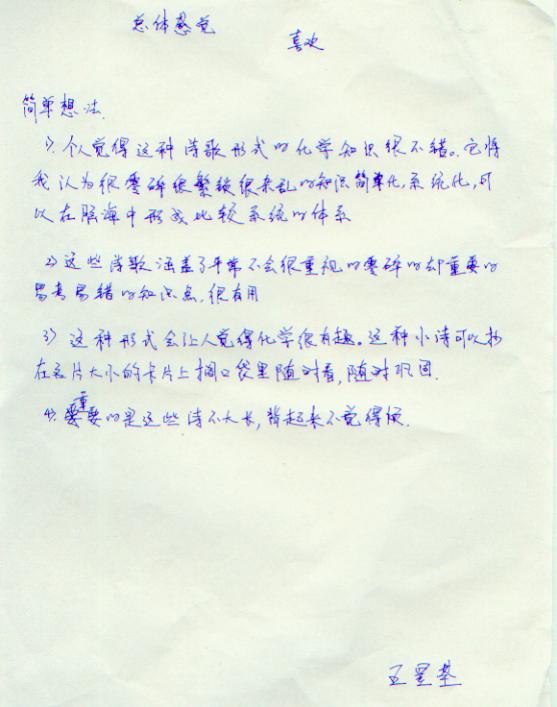 总体感觉
喜欢
简单想法
1) 个人觉得这种诗歌形式的化学知识很不错。它将
我认为很零碎很繁锁很杂乱的知识简单化,系统化,可
以在脑海中形成比较系统的体系
2) 这些诗歌涵盖了平常不会很重视的零碎的却重要的
易考易错的知识点,很有用
3) 这种形式会让人觉得化学很有趣。这种小诗可以抄
在名片大小的卡片上搁口袋里随时看,随时巩固.
4) 重要的是这些诗不太长,背起来不觉得烦.
王星基